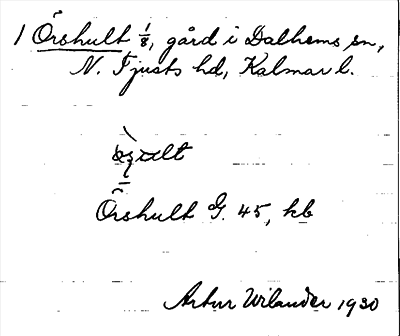 1 Örshult 1/8, gård i Dalhems sn,
N. Tjusts hd, Kalmar l.
Örshult G. 45, kb
Artur Wilander 1930